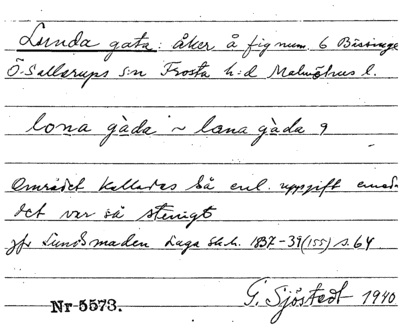 Lunda gata: åker å fig num. 6 Bässinge
Ö. Sallerups s:n Frosta h:d Malmöhus l.
lona gàda ~ lona gàda 9
Området kallades så enl. uppgift emedan
det var så stenigt
jfr Lundsmaden Laga sk.h. 1837-39 (155) s. 64.
G. Sjöstedt 1940
Nr 5573.